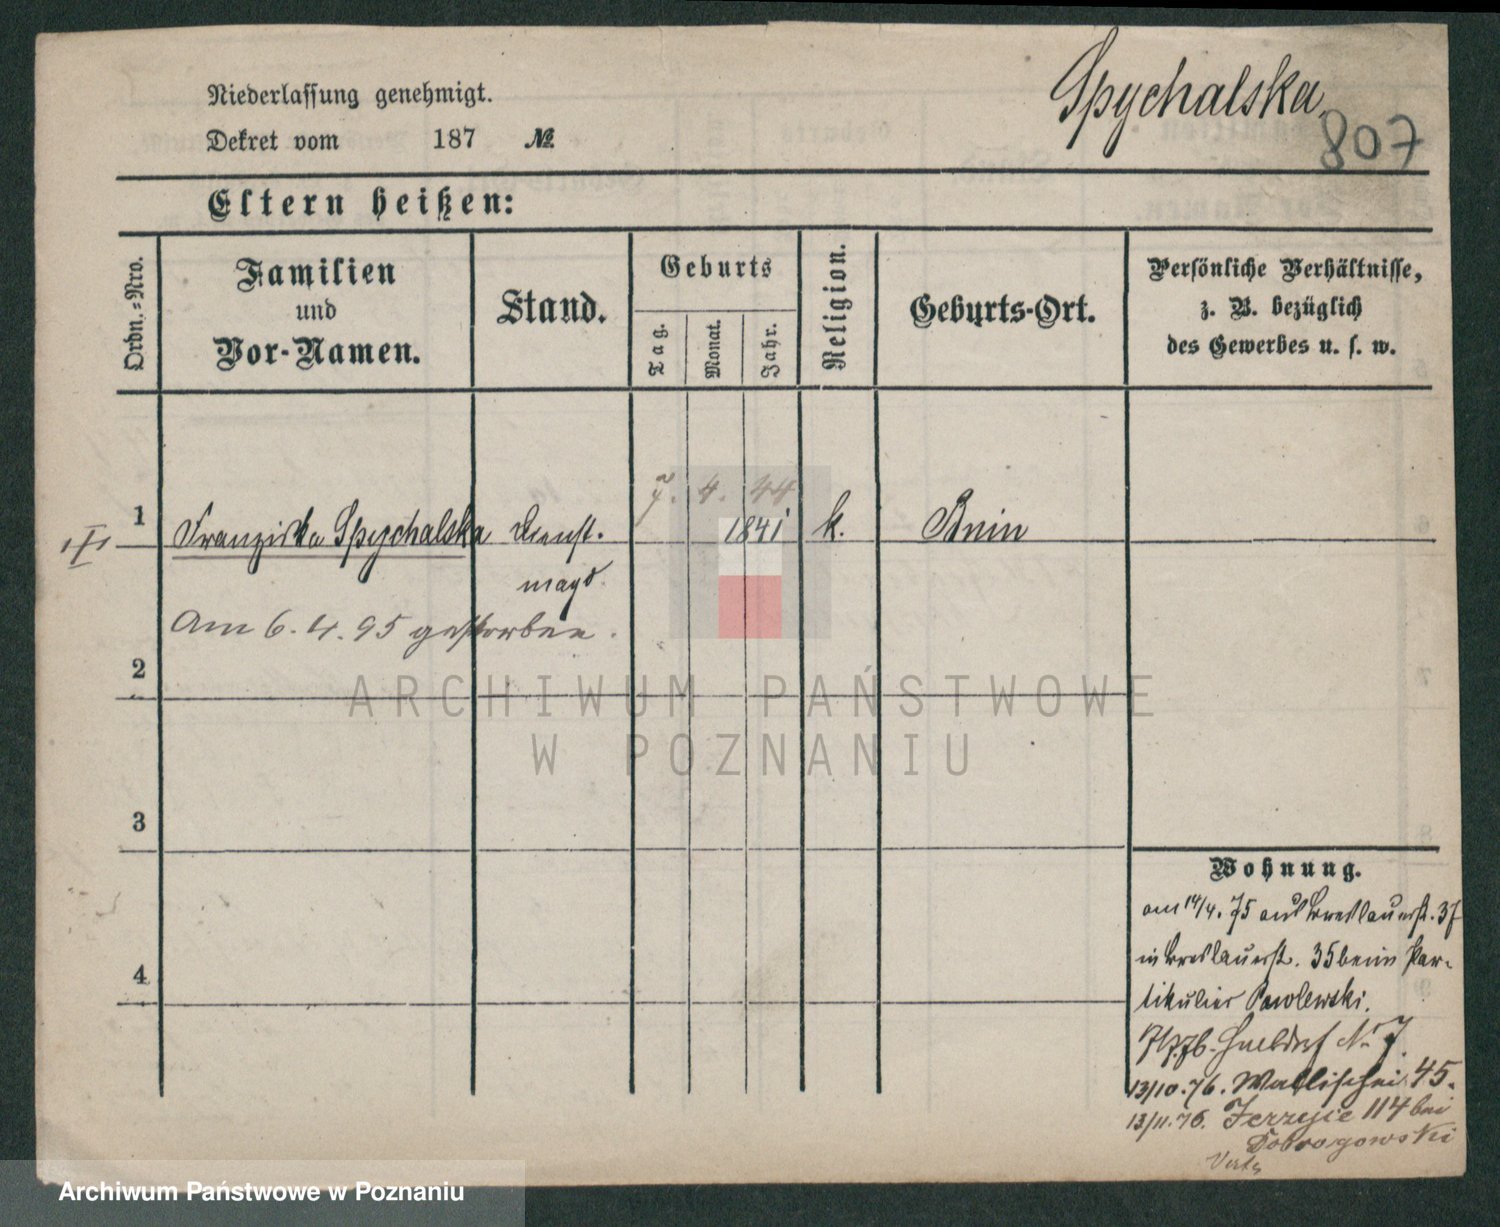 Spychalska
807
Niederlassung genehmigt.
Dekret vom 187 №
Eltern heißen:
Ordn.=Nro.
Familien
und
Vor-Namen.
Stand.
Geburts
Tag.
Monat.
Jahr.
Religion.
Geburts-Ort.
Persönliche Verhältnisse,
z. B. bezüglich
des Gewerbes u. s. w.
7. 4. 44
1 Franziska Spychalska Dienst- 1841 k. Bnin
magd.
Am 6.4.95 gestorben.
2
3
4
ARCHIWUM PAŃSTWOWE
W POZNANIU
Wohnung.
am 14/4. 75 aus Breslauerst. 37
in Breslauerst. 35 beim Par-
tikulier Pawlewski.
No 7.
13/10.76. Wallischei 45.
13/11.76. Jerzyce 114 bei
Dobrogowski
Archiwum Państwowe w Poznaniu